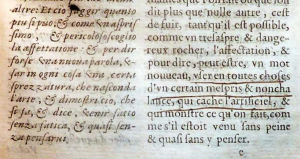 altre: Et cio fuggir quanto
piu si puo, & come vn aspris
simo, & pericoloso scoglio
la affettatione: & per dir
forse vna nuoua parola, v
sar in ogni cosa vna certa
sprezzatura, che nasconda
l'arte, & dimostri cio che
si fa, & dice, venir fatto
senza fatica, & quasi senza
pensarui.
plus que nulle autre, c'est
de fuir, tant qu'il est possible,
comme vn tresaspre & dange-
reux rocher, l'affestation, &
pour dire, peut estre, vn mot
nouueau, vser en toutes choses
d'vn certain mespris & noncha
lance, qui cache l'artificiel, &
qui monstre ce qu'on fait, com
me s'il estoit venu sans peine
& quasi sans y penser.
c